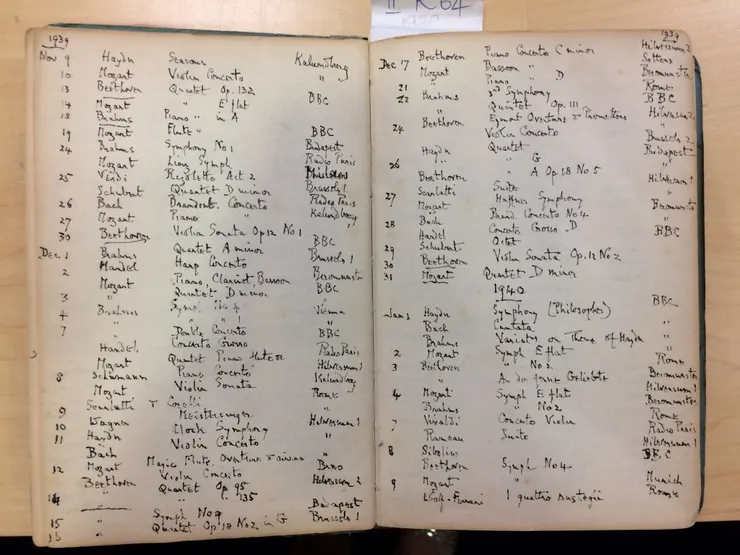 II K64
1939
Nov 9 Haydn Seasons Kalundborg
10 Mozart Violin Concerto "
13 Beethoven Quartet Op. 132
14 Mozart " E flat BBC
18 Brahms Piano " in A
19 Mozart Flute " BBC
24 Brahms Symphony No 1 Budapest
Mozart Linz Symph Radio Paris
25 Verdi Rigoletto Act 2
Schubert Quartet D minor Brussels 1
26 Bach Brandent. Concerto Radio Paris
27 Mozart Piano " Kalundborg
30 Beethoven Violin Sonata Op 12 No 1
Dec 1 Brahms Quartet A minor BBC
2 Handel Harp Concerto Brussels 1
Mozart Piano, Clarinet, Bassoon Beromunster
3 " Quartet D minor BBC
4 Brahms Symph 4 Vienna
" " "
7 " Double Concerto BBC
Handel Concerto Grosso Radio Paris
Mozart Quintet Piano Hilversum 1
8 Schumann Piano Concerto Kalundborg
Mozart Violin Sonata Rome
Scarlatti T Corelli
9 Wagner Meistersinger Hilversum 1
10 Haydn Clock Symphony "
11 Bach Violin Concerto "
12 Mozart Magic Flute Overture Brno
Beethoven Violin Concerto Hilversum 2
14 " Quartet Op 95
" 135
15 " Symph No 9 Budapest
" Quartet Op 18 No 2 in G Brussels 1
1939
Dec 17 Beethoven Piano Concerto C minor Hilversum 2
Mozart Bassoon " Sottens
21 Piano " D Beromunster
22 Brahms 3rd Symphony Rome
" Quintet Op. 111 BBC
24 Beethoven Egmont Overture & Prometheus Hilversum 2
Violin Concerto "
Haydn Quartet Brussels 2
26 " " G Budapest
Beethoven " A Op 18 No 5
27 Scarlatti Suite Hilversum 1
Mozart Haffner Symphony "
28 Bach Brand. Concerto No 4 Beromunster
Handel Concerto Grosso D "
29 Schubert Octet BBC
30 Beethoven Violin Sonata Op. 12 No 2
31 Mozart Quartet D minor
1940
Jan 1 Haydn Symphony (Philosopher) BBC
Bach Cantata "
Brahms Variats on Theme of Haydn "
2 Mozart Symph E flat "
3 Beethoven " No 2 Rome
An die ferne Geliebte Beromunster
4 Mozart Symph E flat Hilversum 1
Brahms " No 2 Beromunster
7 Vivaldi Concerto Violin Rome
Rameau Suite Radio Paris
8 Sibelius Hilversum 1
Beethoven Symph No 4 BBC
9 Mozart " Munich
Wolf-Ferrari I quattro rusteghi Rome